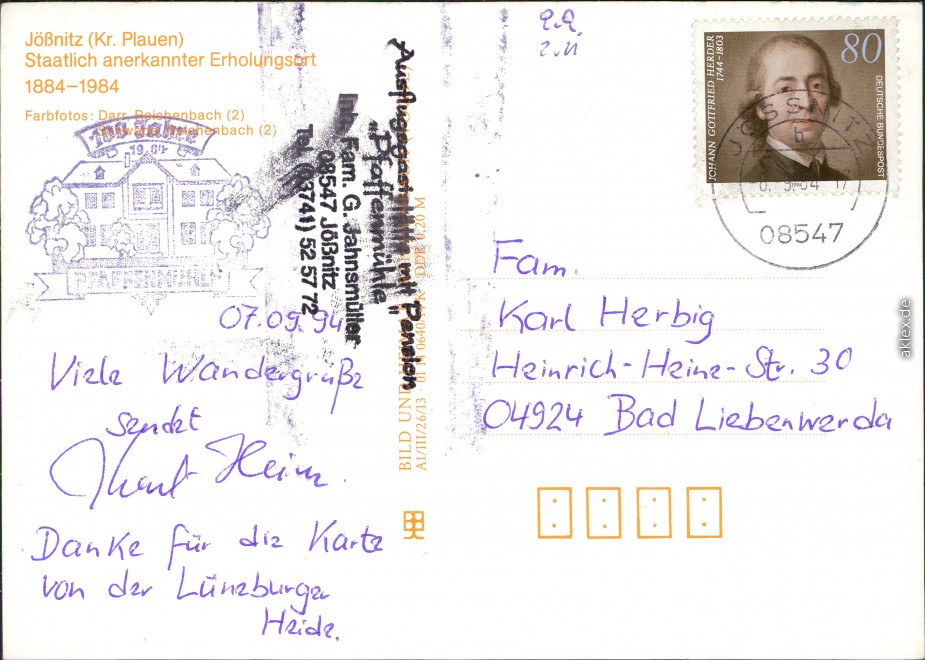 Jößnitz (Kr. Plauen)
Staatlich anerkannter Erholungsort
1884–1984
Farbfotos: Darr, Reichenbach (2)
Reichenbach (2)
100 Jahre
1984
PFAFFENMÜHLE
Ausflugsgaststätte mit Pension
„Pfaffenmühle"
Inh. Fam. G. Jahnsmüller
08547 Jößnitz
Tel. (03741) 52 57 72
07.09.94
Viele Wandergrüße
sendet
Heinz
Danke für die Karte
von der Lüneburger
Heide.
BILD UND
A1/III/26/13 · 01 14 0640/ K DDR 0,20 M
JOHANN GOTTFRIED HERDER
1744–1803
80
DEUTSCHE BUNDESPOST
JÖSSNITZ
08547
Fam.
Karl Herbig
Heinrich-Heine-Str. 30
04924 Bad Liebenwerda
aklex.de